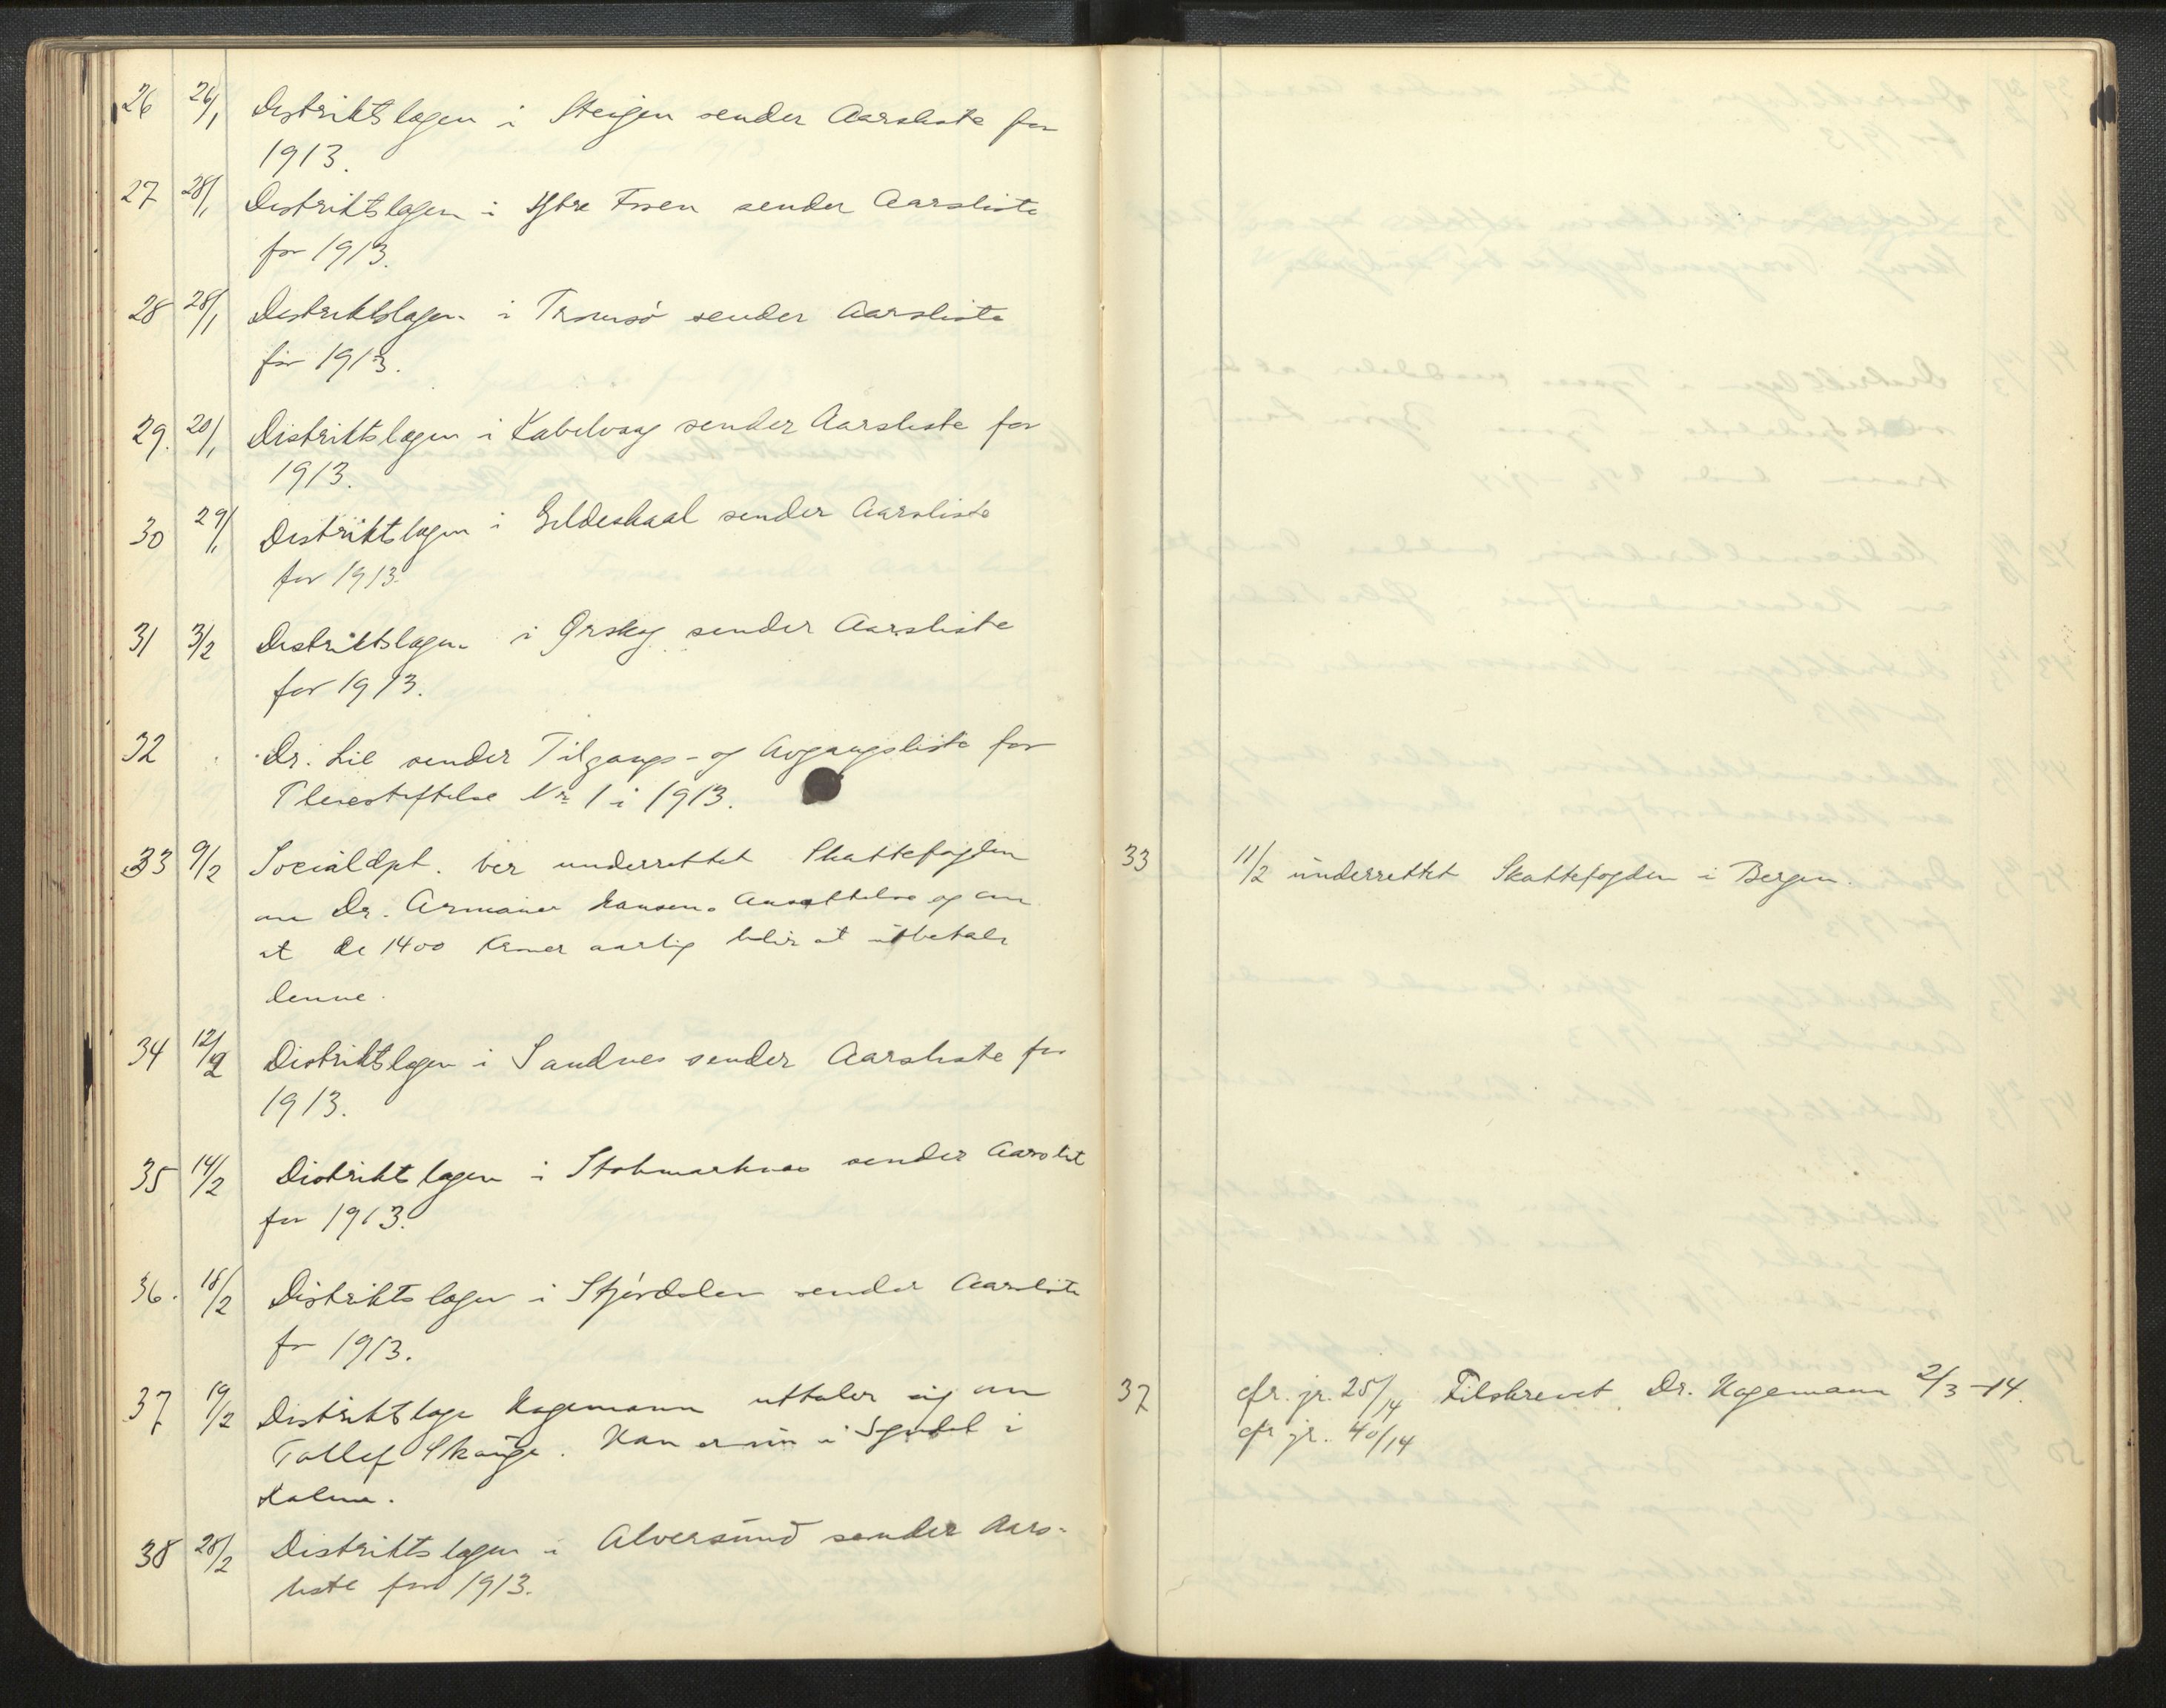 26 26/1 Distriktslægen i Steigen sender Aarsliste for
1913.
27 28/1 Distriktslægen i Ytre Fosen sender Aarsliste
for 1913.
28 28/1 Distriktslægen i Tromsö sender Aarsliste
for 1913.
29. 20/1 Distriktslægen i Kabelvaag sender Aarsliste for
1913.
30 29/1 Distriktslægen i Gildeskaal sender Aarsliste
for 1913
31 3/2 Distriktslægen i Ørskog sender Aarsliste
for 1913.
32 Dr. Lie sender Tilgangs- og Avgangsliste for
Pleiestiftelse No 1 i 1913.
33 9/2 Socialdpt. ber underrettet Skattefogden
om Dr. Armauer Hansens Ansættelse og om
at de 1400 Kroner aarlig blir at utbetale
denne.
34 12/2 Distriktslægen i Sandnes sender Aarsliste for
1913.
35 14/2 Distriktslægen i Stokmarknes sender Aarslist
for 1913.
36. 18/2 Distriktslægen i Stjördalen sender Aarsliste
for 1913.
37 19/2 Distriktslæge Hagemann uttaler sig om
Tollef Skauge. Han er nu i
38 28/2 Distriktslægen i Alversund sender Aars-
liste for 1913.
33 11/2 underrettet Skattefogden i Bergen.
37 cfr. jr. 25/14 Tilskrevet Dr. Hagemann 2/3-14.
cfr jr. 40/14